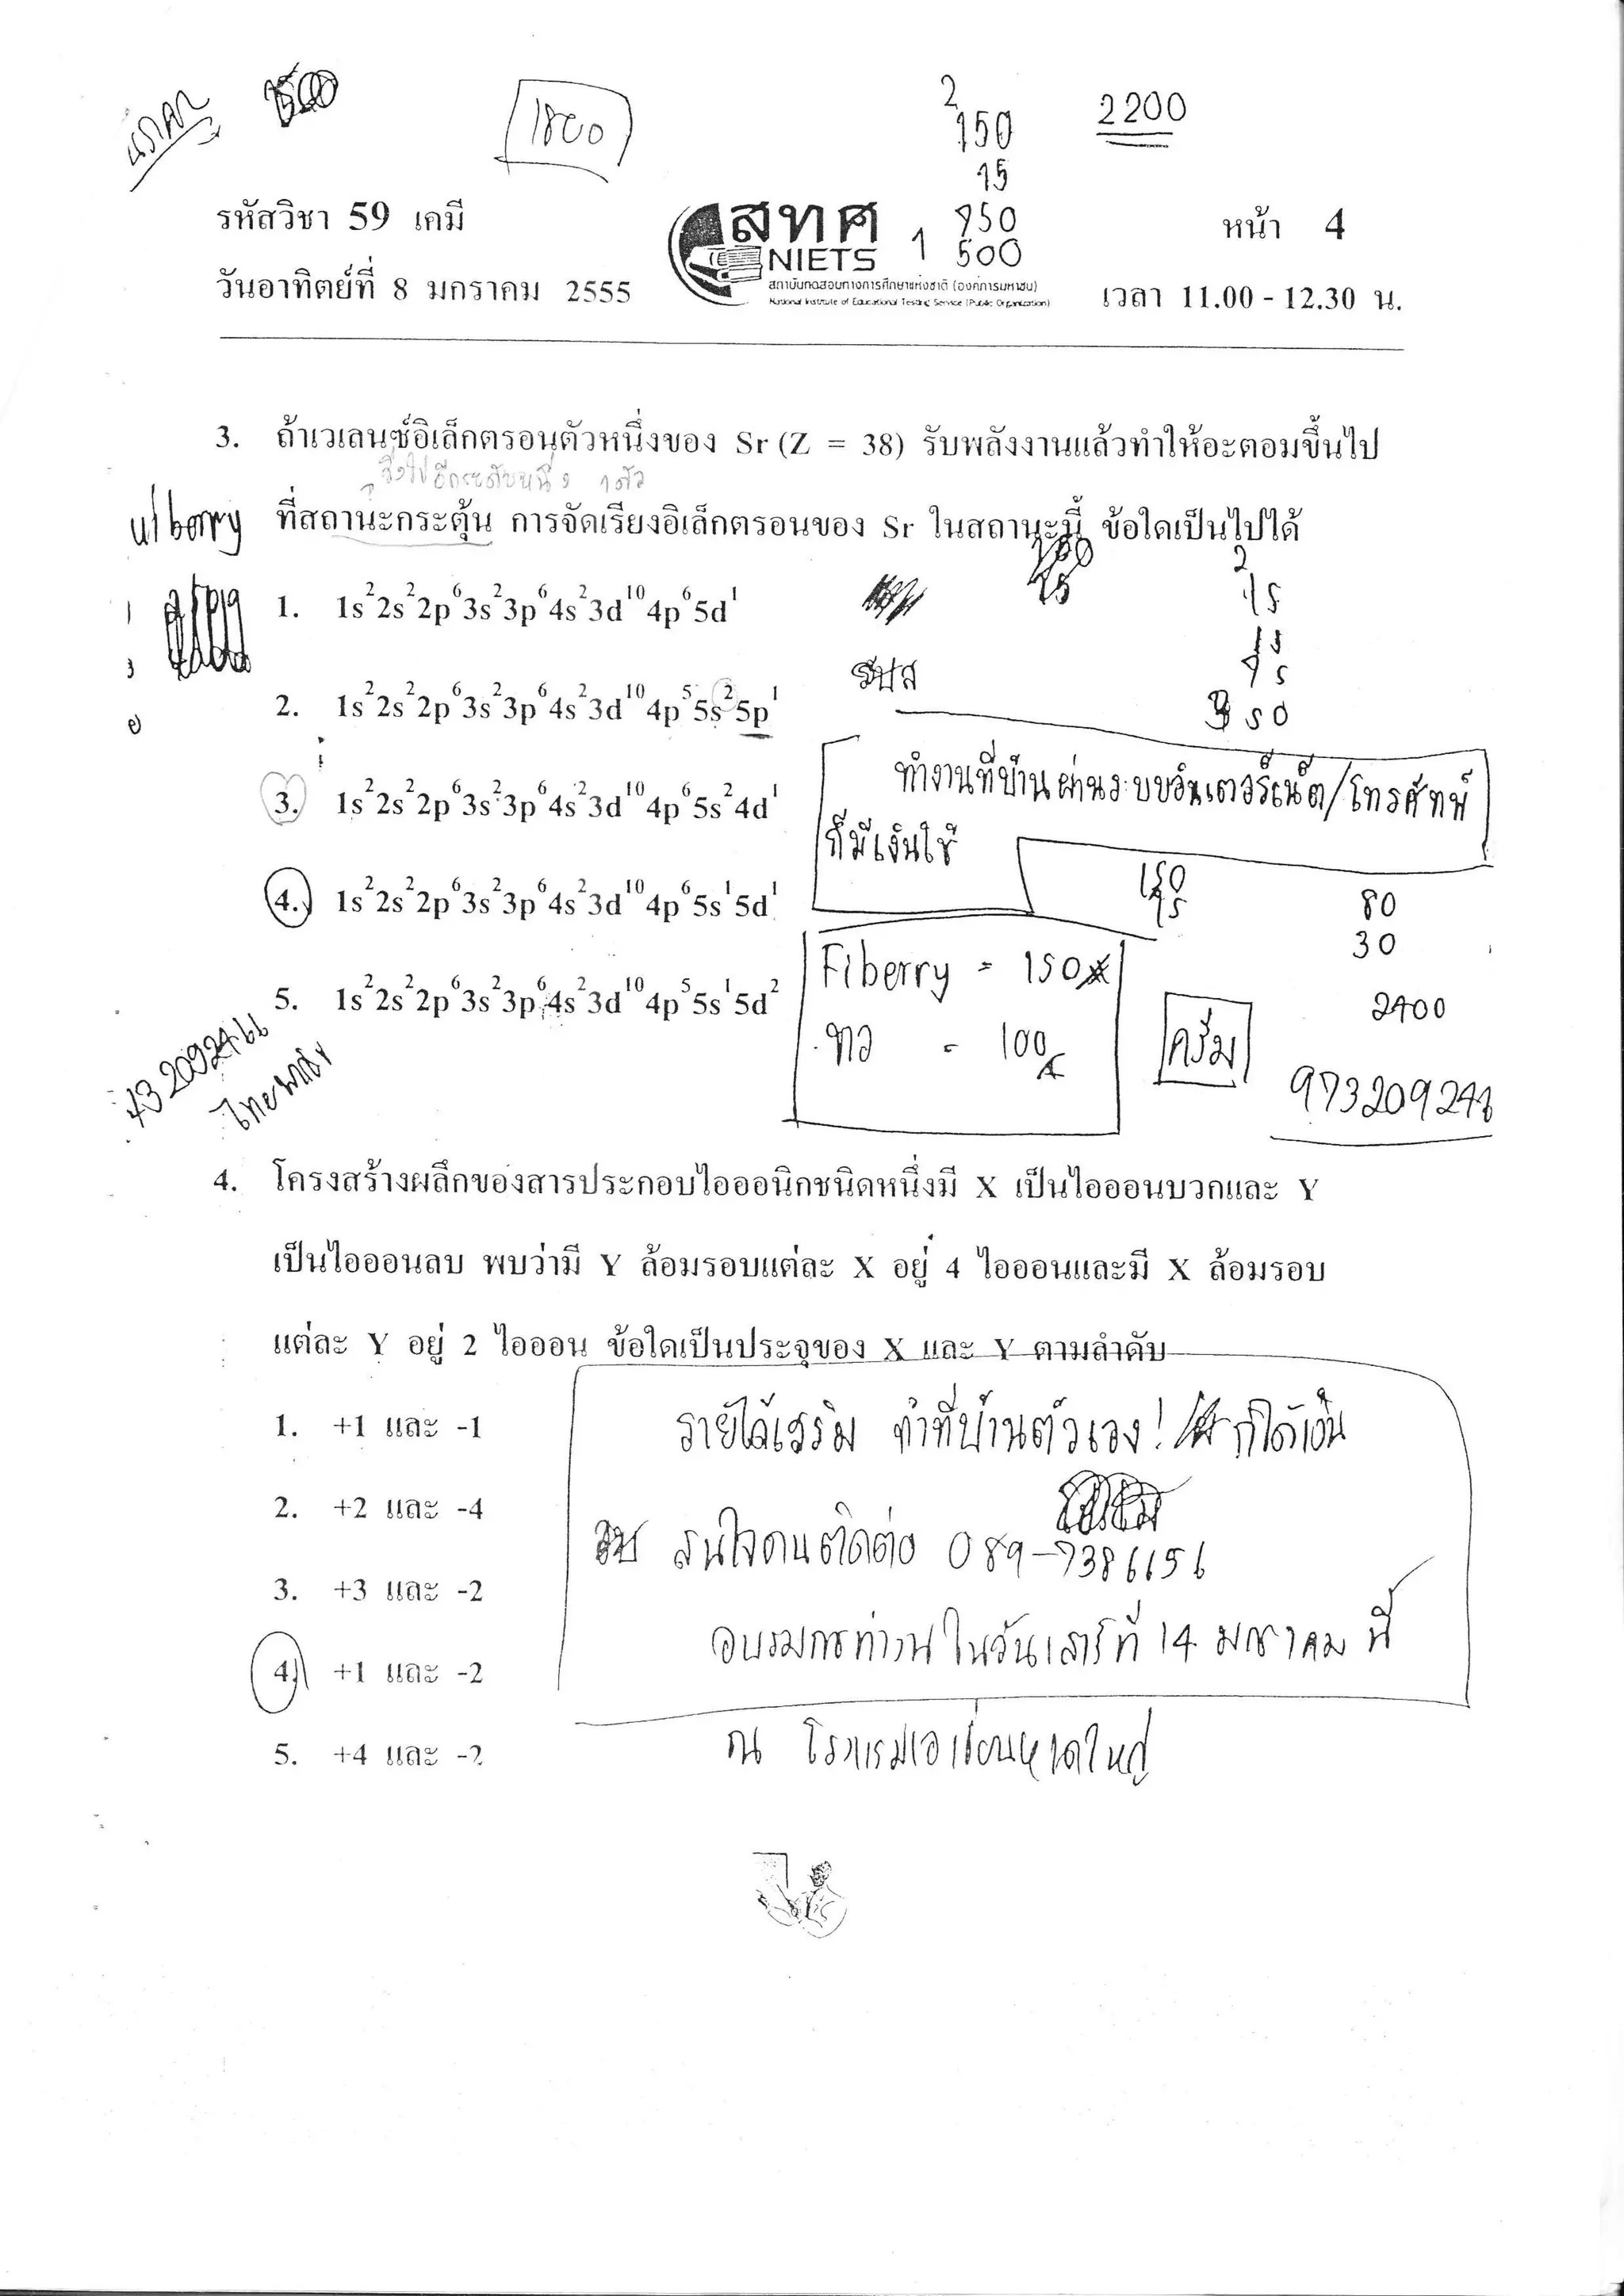 1800
2
150
15
750
1 500
2200
รหัสวิชา 59 เคมี
หน้า 4
สทศ
NIETS
สถาบันทดสอบทางการศึกษาแห่งชาติ (องค์การมหาชน)
National Institute of Educational Testing Service (Public Organization)
วันอาทิตย์ที่ 8 มกราคม 2555
เวลา 11.00 - 12.30 น.
3. ถ้าเวเลนซ์อิเล็กตรอนตัวหนึ่งของ Sr (Z = 38) รับพลังงานแล้วทำให้อะตอมขึ้นไป
ที่สถานะกระตุ้น การจัดเรียงอิเล็กตรอนของ Sr ในสถานะนี้ ข้อใดเป็นไปได้
1. 1s²2s²2p⁶3s²3p⁶4s²3d¹⁰4p⁶5d¹
2. 1s²2s²2p⁶3s²3p⁶4s²3d¹⁰4p⁵5s²5p¹
3. 1s²2s²2p⁶3s²3p⁶4s²3d¹⁰4p⁶5s²4d¹
4. 1s²2s²2p⁶3s²3p⁶4s²3d¹⁰4p⁶5s¹5d¹
5. 1s²2s²2p⁶3s²3p⁶4s²3d¹⁰4p⁵5s¹5d²
ทำงานที่บ้านผ่านระบบอินเตอร์เน็ต/โทรศัพท์
ก็มีเงินใช้
150
15
80
30
Fiberry = 150
= 100
ครีม
2400
973209246
4. โครงสร้างผลึกของสารประกอบไอออนิกชนิดหนึ่งมี X เป็นไอออนบวกและ Y
เป็นไอออนลบ พบว่ามี Y ล้อมรอบแต่ละ X อยู่ 4 ไอออนและมี X ล้อมรอบ
แต่ละ Y อยู่ 2 ไอออน ข้อใดเป็นประจุของ X และ Y ตามลำดับ
1. +1 และ -1
2. +2 และ -4
3. +3 และ -2
4. +1 และ -2
5. +4 และ -2
รายได้เสริม ทำที่บ้านตัวเอง! ก็ได้เงิน
สนใจ ติดต่อ 089-7386156
อบรมการทำงานในวันเสาร์ที่ 14 มกราคม นี้
ณ โรงแรมเอเชียนหาดใหญ่